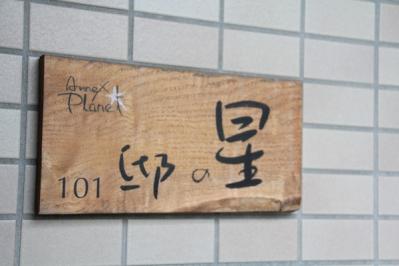 Annex
Planet
101
星の邸